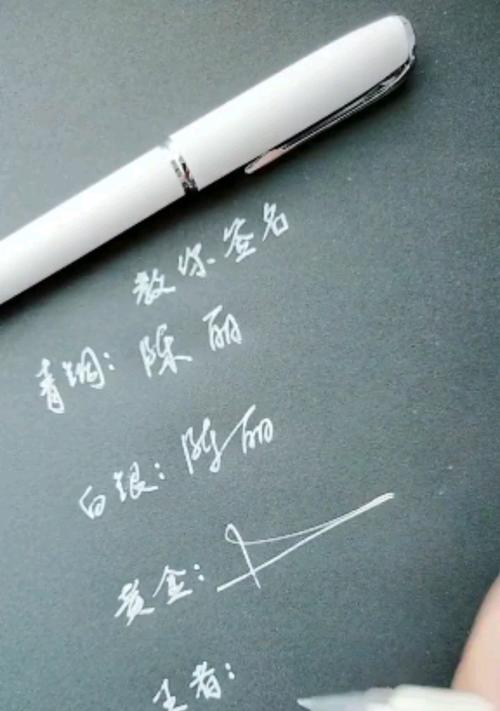 教你签名
青铜：陈丽
白银：陈丽
黄金：
王者：